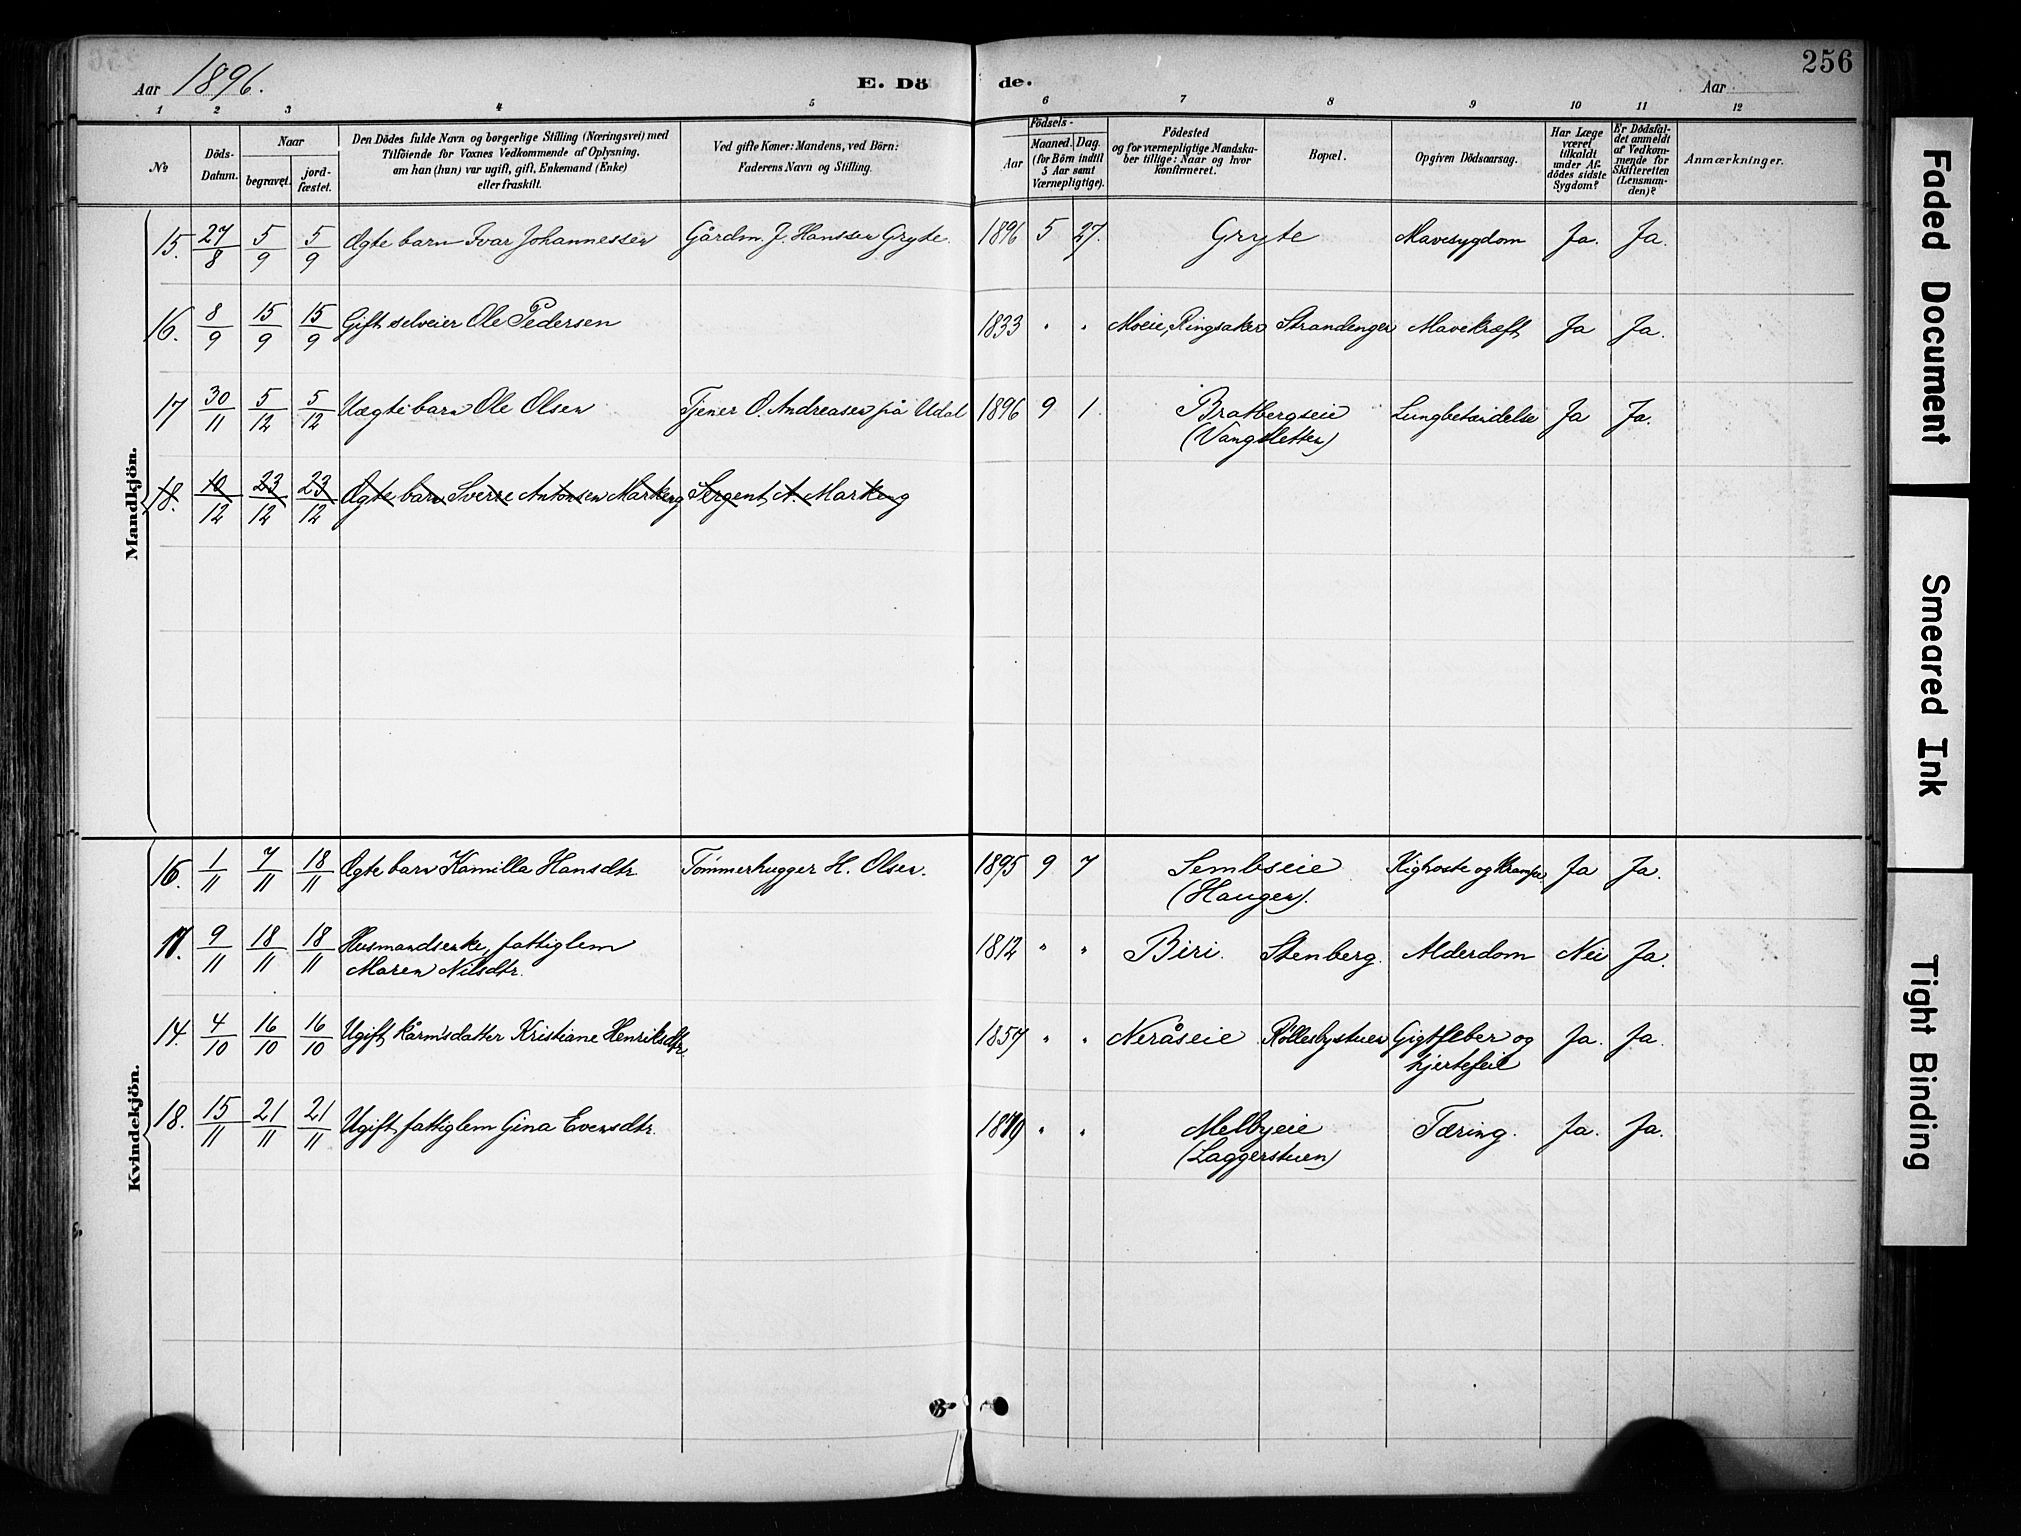 256
Aar 1896. E. Dö de. Aar
1 2 3 4 5 6 7 8 9 10 11 12
No
Döds-Datum.
Naar
begravet.
jord-fæstet.
Den Dödes fulde Navn og borgerlige Stilling (Næringsvei) med
Tilföiende for Voxnes Vedkommende af Oplysning,
om han (hun) var ugift, gift, Enkemand (Enke)
eller fraskilt.
Ved gifte Koner: Mandens, ved Börn:
Faderens Navn og Stilling.
Födsels-
Aar
Maaned. Dag.
(for Börn indtil
5 Aar samt
Værnepligtige).
Födested
og for værnepligtige Mandska-
ber tillige: Naar og hvor
konfirmeret.
Bopæl.
Opgiven Dödsaarsag.
Har Læge
været
tilkaldt
under Af-
dödes sidste
Sygdom?
Er Dödsfal-
det anmeldt
af Vedkom-
mende for
Skifteretten
(Lensman-
den)?
Anmærkninger.
Mandkjön.
15. 27/8 5/9 5/9 Ægte barn Ivar Johannessen Gårdm. J. Hanssen Gryte. 1896 5 27. Gryte Mavesygdom Ja. Ja.
16. 8/9 15/9 15/9 Gift selveier Ole Pedersen 1833 " " Moeie, Ringsaker Strandenger Mavekræft Ja Ja.
17 30/11 5/12 5/12 Uægte barn Ole Olsen Tjener O. Andreasen på Udal 1896 9 1. Bratbergseie Lungbetændelse Ja Ja.
(Vangsletten)
18. 10/12 23/12 23/12 Ægte barn Sverre Antonsen Markeng Sergent A. Markeng
Kvindekjön.
16. 1/11 7/11 18/11 Ægte barn Kamilla Hansdtr. Tömmerhugger H. Olsen. 1895 9 7 Sembseie Kighoste og Krampe Ja Ja.
(Haugen).
17. 9/11 18/11 18/11 Husmandsenke, fattiglem 1812 " " Biri. Stenberg. Alderdom Nei Ja.
Maren Nilsdtr.
14. 4/10 16/10 16/10 Ugift kårm'sdatter Kristiane Henriksdtr. 1857 " " Neråseie Röllesbystuen Gigtfeber og Ja. Ja.
hjertefeil
18. 15/11 21/11 21/11 Ugift fattiglem Gina Evensdtr. " " Melbyeie Tæring. Ja. Ja.
(Laggerstuen)
Faded Document
Smeared Ink
Tight Binding